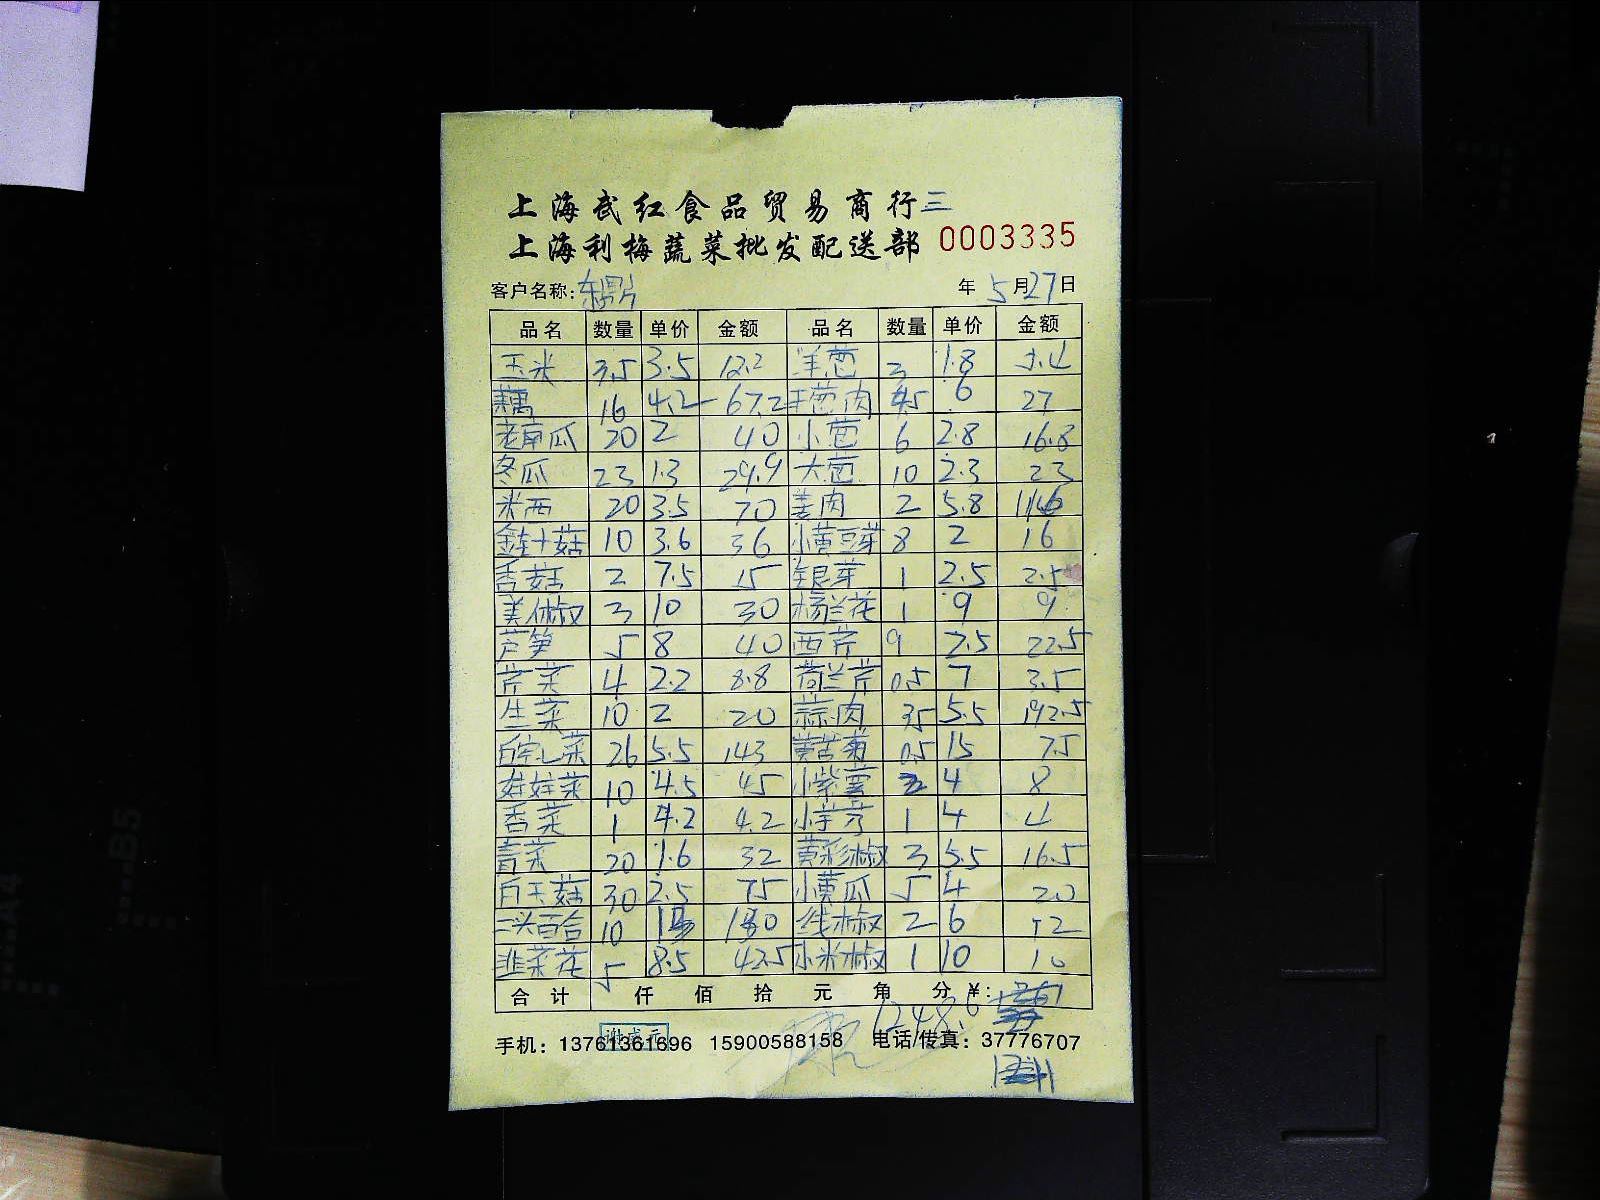 上海武红食品贸易商行三
上海利梅蔬菜批发配送部 0003335
客户名称: 年 5月27日
品名 数量 单价 金额 品名 数量 单价 金额
玉米 3.5 3.5 12.2 洋葱 3 1.8 5.4
藕 16 4.2 67.2 干葱肉 4.5 6 27
老南瓜 20 2 40 小葱 6 2.8 16.8
冬瓜 23 1.3 29.9 大葱 10 2.3 23
米西 20 3.5 70 姜肉 2 5.8 11.6
金针菇 10 3.6 36 小黄豆芽 8 2 16
香菇 2 7.5 15 银芽 1 2.5 2.5
美人椒 3 10 30 杨兰花 1 9 9
芦笋 5 8 40 西芹 9 2.5 22.5
芹菜 4 2.2 8.8 荷兰芹 0.5 7 3.5
生菜 10 2 20 蒜肉 35 5.5 192.5
白空心菜 26 5.5 143 黄苦菊 0.5 15 7.5
娃娃菜 10 4.5 45 小紫薯 2 4 8
香菜 1 4.2 4.2 小芋艿 1 4 4
青菜 20 1.6 32 黄彩椒 3 5.5 16.5
白玉菇 30 2.5 75 小黄瓜 5 4 20
三头百合 10 线椒 2 6 12
韭菜花 5 8.5 42.5 小米椒 1 10 10
合计 仟 佰 拾 元 角 分 ¥:
1248.6
手机: 13761361696 15900588158 电话/传真: 37776707